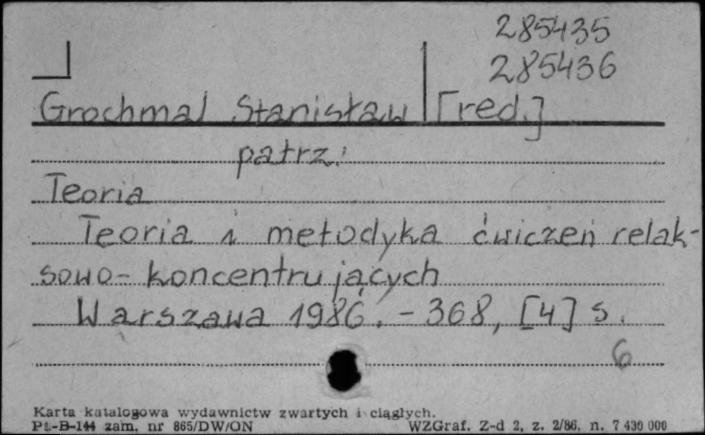 285435
285436
Grochmal Stanisław [red.]
patrz:
Teoria
Teoria i metodyka ćwiczeń relak-
sowo-koncentrujących
Warszawa 1986. - 368, [4] s.
6
Karta katalogowa wydawnictw zwartych i ciągłych.
Pt-B-144 zam. nr 865/DW/ON WZGraf. Z-d 2, z. 2/86, n. 7 430 000